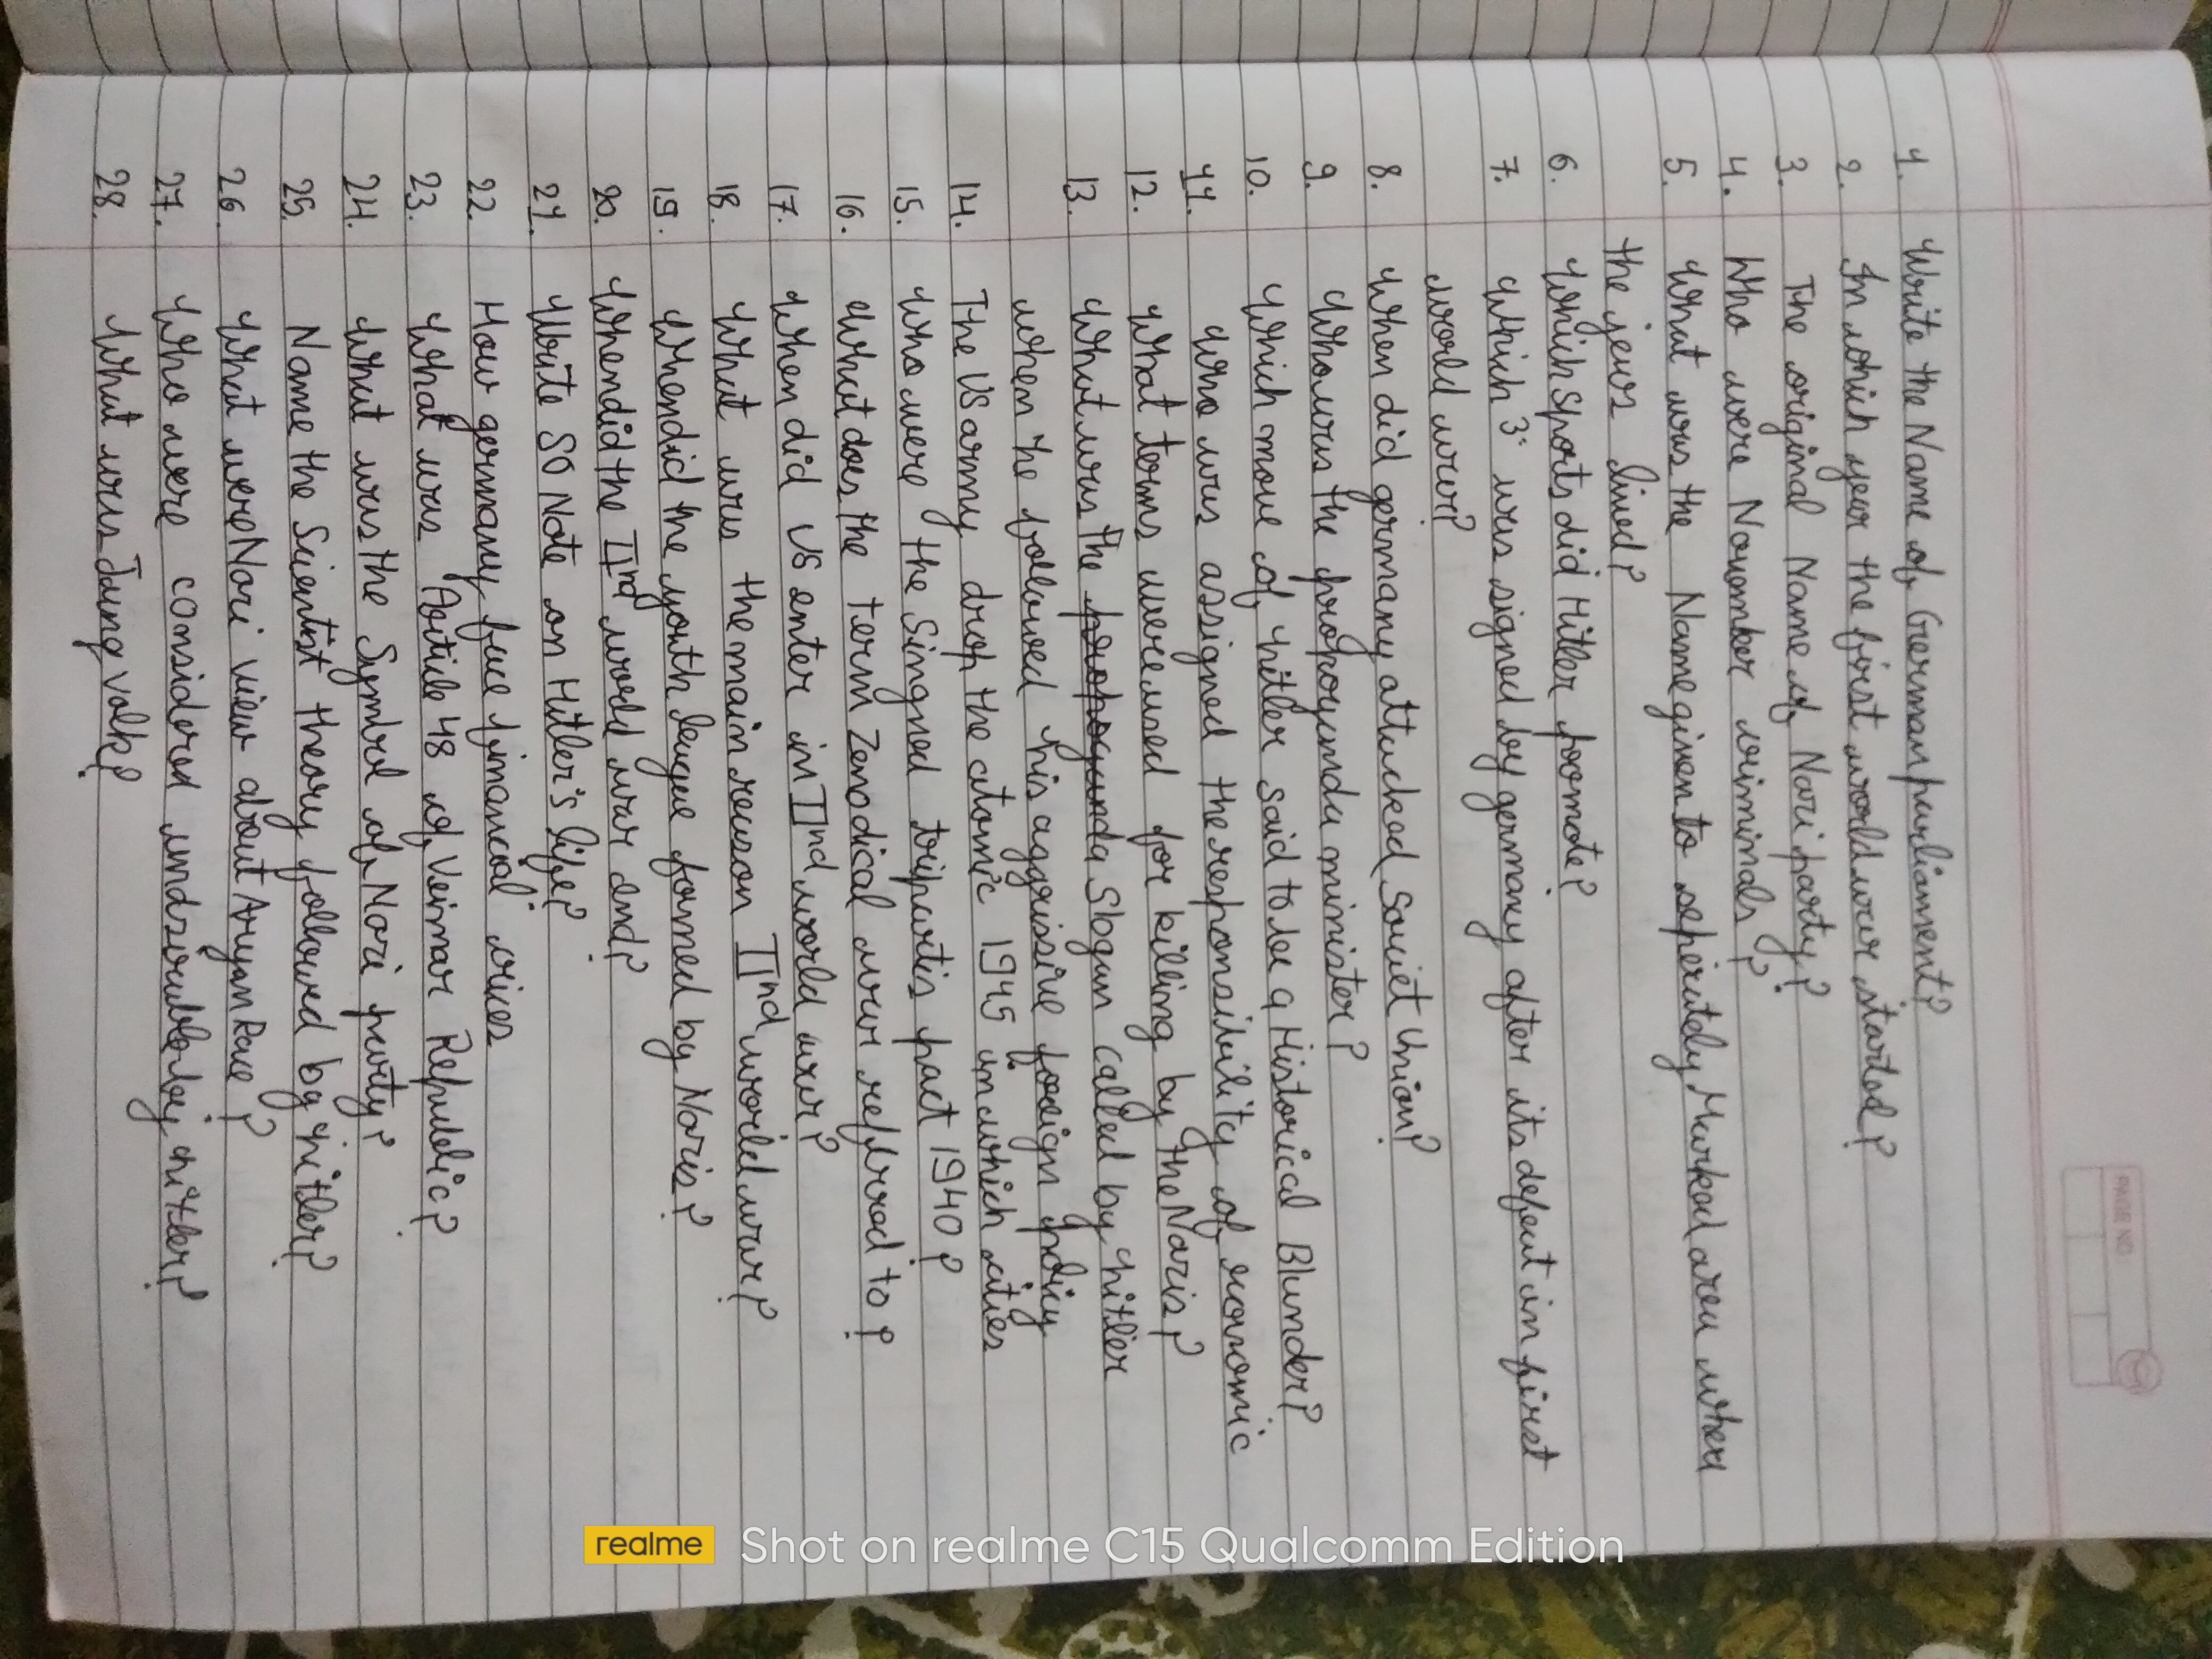 PAGE NO.
1. Write the Name of German parliament?
2. In which year the first world war started?
3. The original Name of Nazi party?
4. Who were November criminals?
5. What was the Name given to seperately Marked area where
the jews lived?
6. Which Sports did Hitler promote?
7. Which 3. was signed by germany after its defeat in first
world war?
8. When did germany attacked Soviet Union?
9. Who was the propoganda minister?
10. Which move of hitler said to be a Historical Blunder?
11. Who was assigned the responsibility of economic
12. What terms were used for killing by the Nazis?
13. What was the propoganda Slogan called by hitler
when he followed his aggrissive foreign policy
14. The US army drop the atomic 1945 in which cities
15. Who were the Singned tripartis pact 1940?
16. What does the term Zenodical war refrred to?
17. When did US enter in IInd world war?
18. What was the main reason IInd world war?
19. Whendid the youth league formed by Nazis?
20. Whendid the IInd world war end?
21. Write SO Note on Hitler's life?
22. How germany face financial crises
23. What was Article 48 of Veimar Republic?
24. What was the Symbol of Nazi party?
25. Name the Scientist theory followed by hitler?
26. What were Nazi view about Aryan Race?
27. Who were considered undsirable by hitler?
28. What was Jung volk?
realme Shot on realme C15 Qualcomm Edition